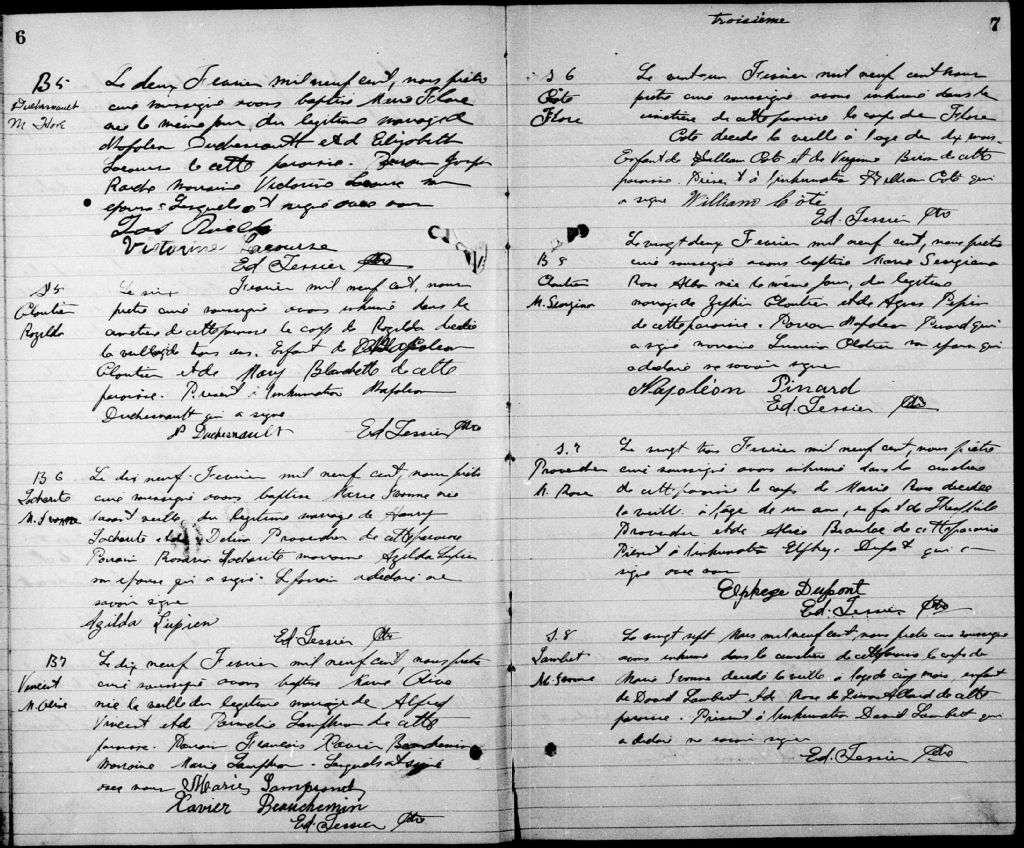 6
B 5
Duchesneault
M Flore
Le deux Fevrier mil neuf cent, nous prêtre
curé soussigné avons baptisé Marie Flore
née le même jour, du legitime mariage de
Napoleon Duchesneault et d Elizabeth
Lacourse de cette paroisse. Parrain Joseph
Marraine Victorine Lacourse son
épouse lesquels ont signé avec nous
Jos
Victorine Lacourse
Ed Tessier Ptre
S 5
Cloutier
Rozilda
Le six Fevrier mil neuf cent, nous
prêtre curé soussigné avons inhumé dans le
cimetière de cette paroisse le corps de Rozilda decédée
la veille de trois ans. Enfant de Napoleon
Cloutier et de Mary Blanchette de cette
paroisse. Présent à l'inhumation Napoleon
Duchesneault qui a signé
N Duchesneault
Ed Tessier Ptre
B 6
M. Ivonne
Le dix neuf Fevrier mil neuf cent, nous prêtre
curé soussigné avons baptisé Marie Ivonne née
veille, du legitime mariage de Henry
et de Delina Provencher de cette paroisse
Parrain marraine Azilda Lupien
son epouse qui a signé. Le parrain a déclaré ne
savoir signer
Azilda Lupien
Ed. Tessier Ptre
B 7
Vincent
M. Olive
Le dix neuf Fevrier mil neuf cent, nous prêtre
curé soussigné avons baptisé Marie Olive
née la veille du legitime mariage de Alfred
Vincent et de de cette
paroisse. Parrain François Xavier Beauchemin
marraine Marie Lesquels ont signé
avec nous Marie
Xavier Beauchemin
Ed. Tessier Ptre
troisième
7
S 6
Coté
Flore
Le vingt un Fevrier mil neuf cent nous
prêtre curé soussigné avons inhumé dans le
cimetière de cette paroisse le corps de Flore
Coté decedée la veille à l'age de dix mois
Enfant de William Coté et de Virginie de cette
paroisse. Présent à l'inhumation William Coté qui
a signé William Côté
Ed. Tessier Ptre
B 8
Cloutier
M. Georgina
Le vingt deux Fevrier mil neuf cent, nous prêtre
curé soussigné avons baptisé Marie Georgiana
Rose Alba née le même jour, du legitime
mariage de Zephir Cloutier et de Agnes Pepin
de cette paroisse. Parrain Napoleon Pinard qui
a signé marraine Cloutier son epouse qui
a déclaré ne savoir signer
Napoléon Pinard
Ed. Tessier Ptre
S. 7
Provencher
M. Rose
Le vingt trois Fevrier mil neuf cent, nous prêtre
curé soussigné avons inhumé dans le cimetière
de cette paroisse le corps de Marie Rose decédée
la veille à l'age de un ans, enfant de Theophile
Provencher et de Alice de cette paroisse
Présent à l'inhumation Elphege Dupont qui a
signé avec nous
Elphege Dupont
Ed. Tessier Ptre
S. 8
Lambert
M. Ivonne
Le vingt sept Mars mil neuf cent, nous prêtre curé soussigné
avons inhumé dans le cimetière de cette paroisse le corps de
Marie Ivonne decedé la veille à l'age de cinq mois, enfant
de David Lambert et de Rose de Lima Allard de cette
paroisse. Présent à l'inhumation David Lambert qui
a déclaré ne savoir signer
Ed. Tessier Ptre